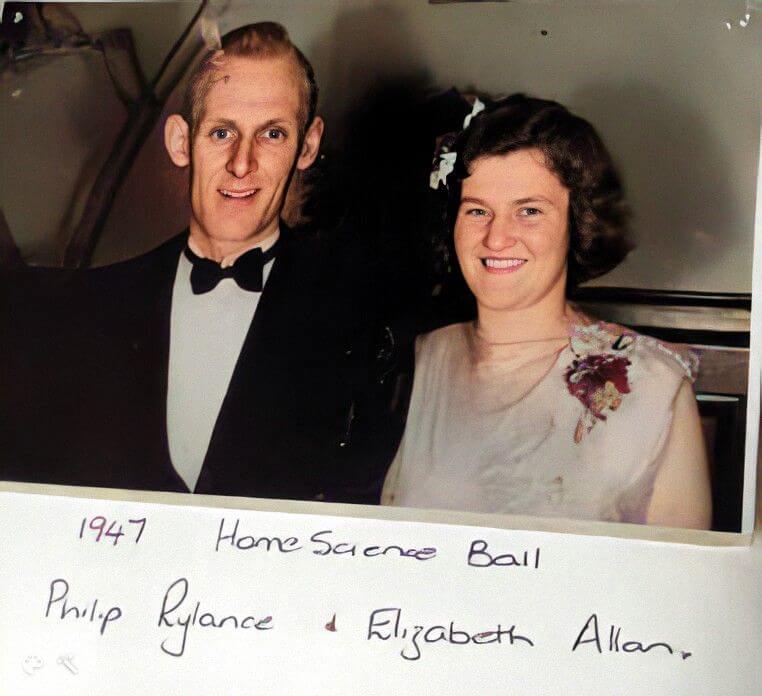 1947 Home Science Ball
Philip Rylance & Elizabeth Allan.